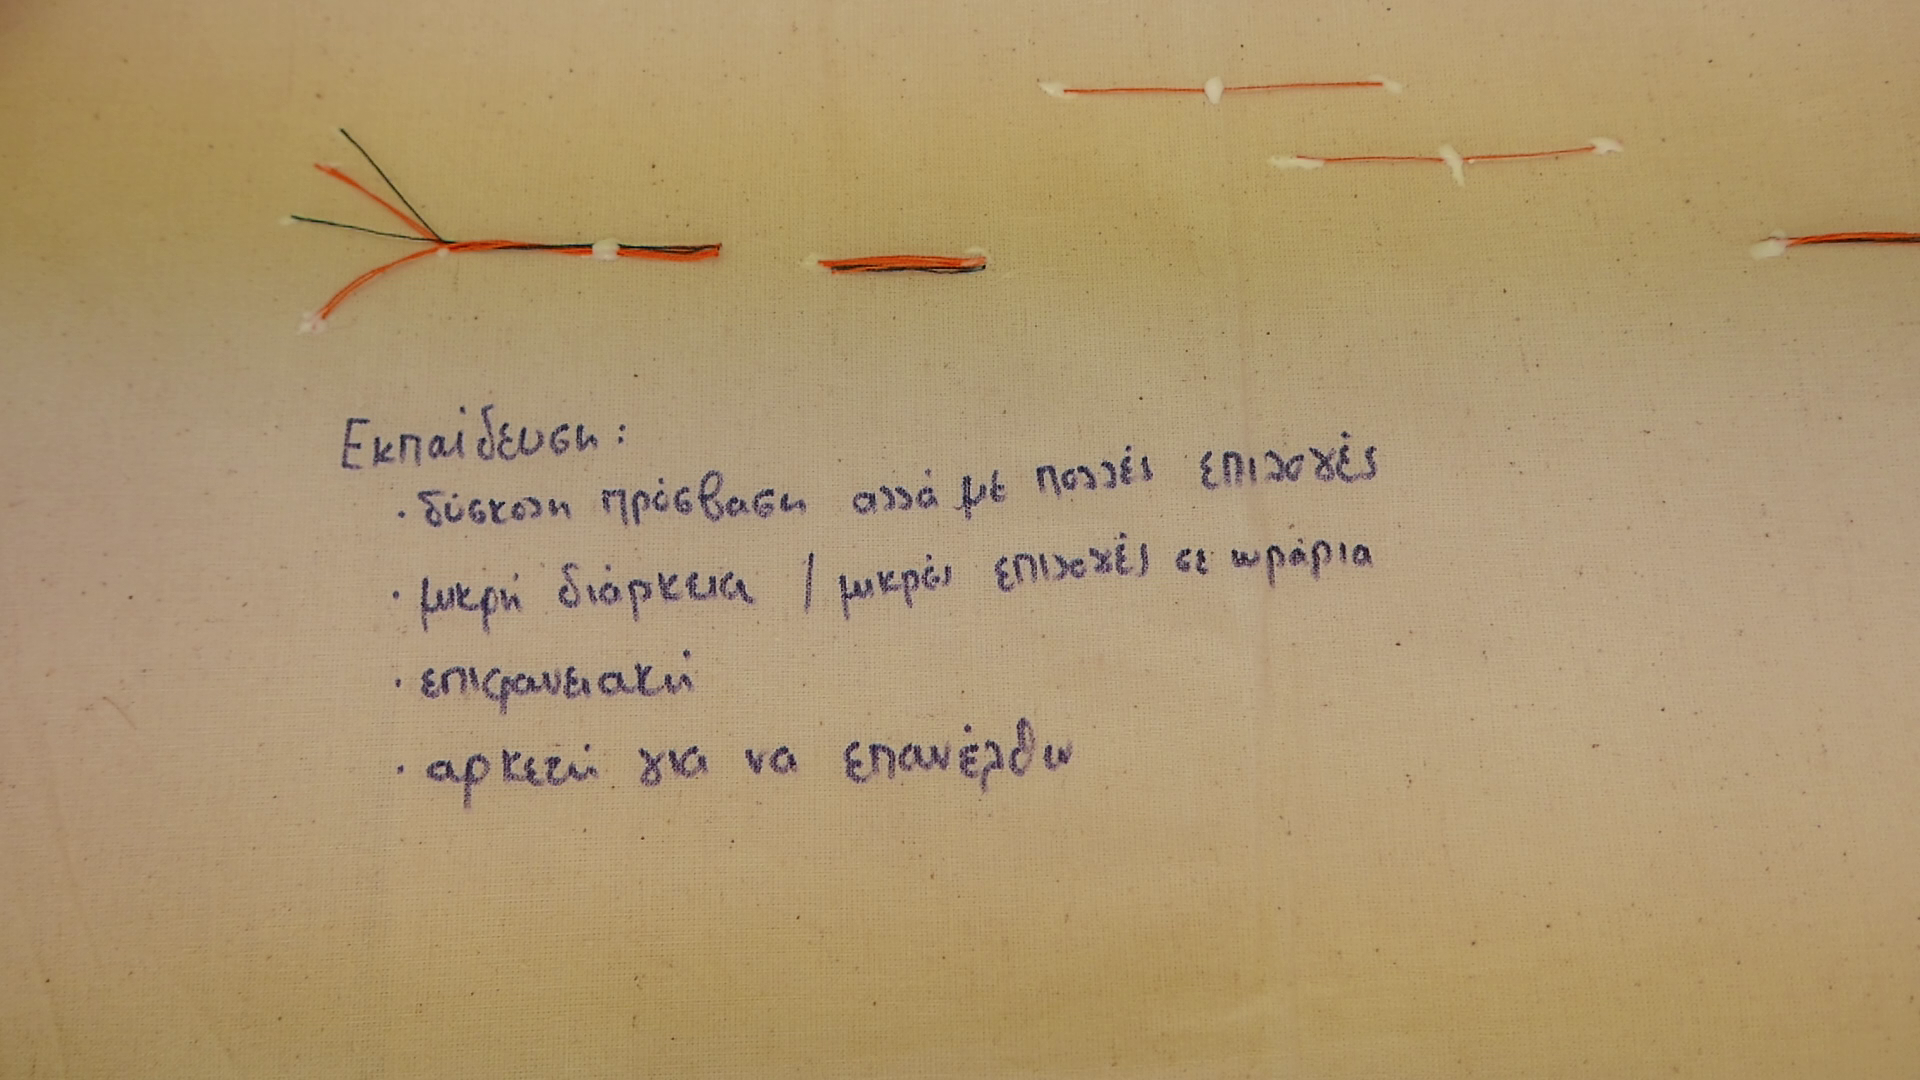 Εκπαίδευση:
· δύσκολη πρόσβαση αλλά με πολλές επιλογές
· μικρή διάρκεια / μικρές επιλογές σε ωράρια
· επιφανειακή
· αρκετή για να επανέλθω